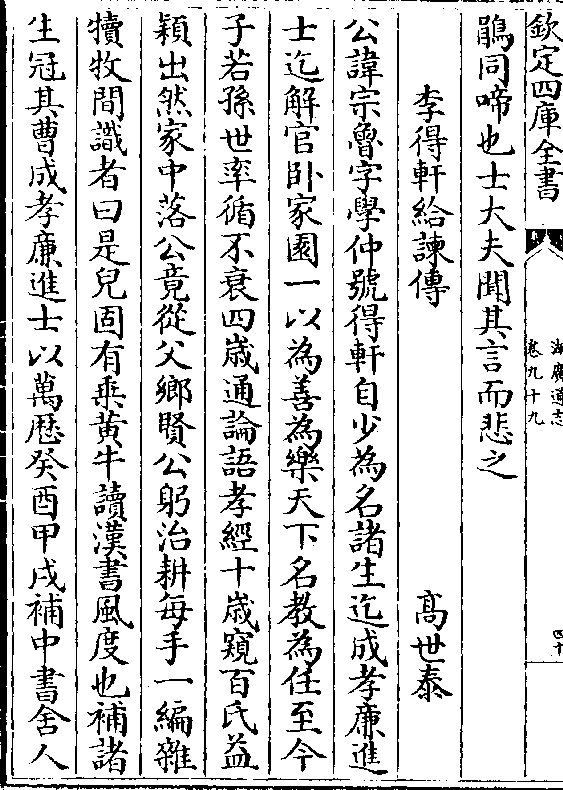 欽定四庫全書
湖廣通志
卷九十九
四十
鵑同啼也士大夫聞其言而悲之
李得軒給諫傳
高世泰
公諱宗魯字學仲號得軒自少為名諸生迄成孝廉進
士迄解官卧家園一以為善為樂天下名教為任至今
子若孫世率循不衰四歲通論語孝經十歲窺百氏益
穎出然家中落公竟從父鄉賢公躬治耕每手一編雜
犢牧間識者曰是兒固有乗黄牛讀漢書風度也補諸
生冠其曹成孝廉進士以萬厯癸酉甲戌補中書舍人